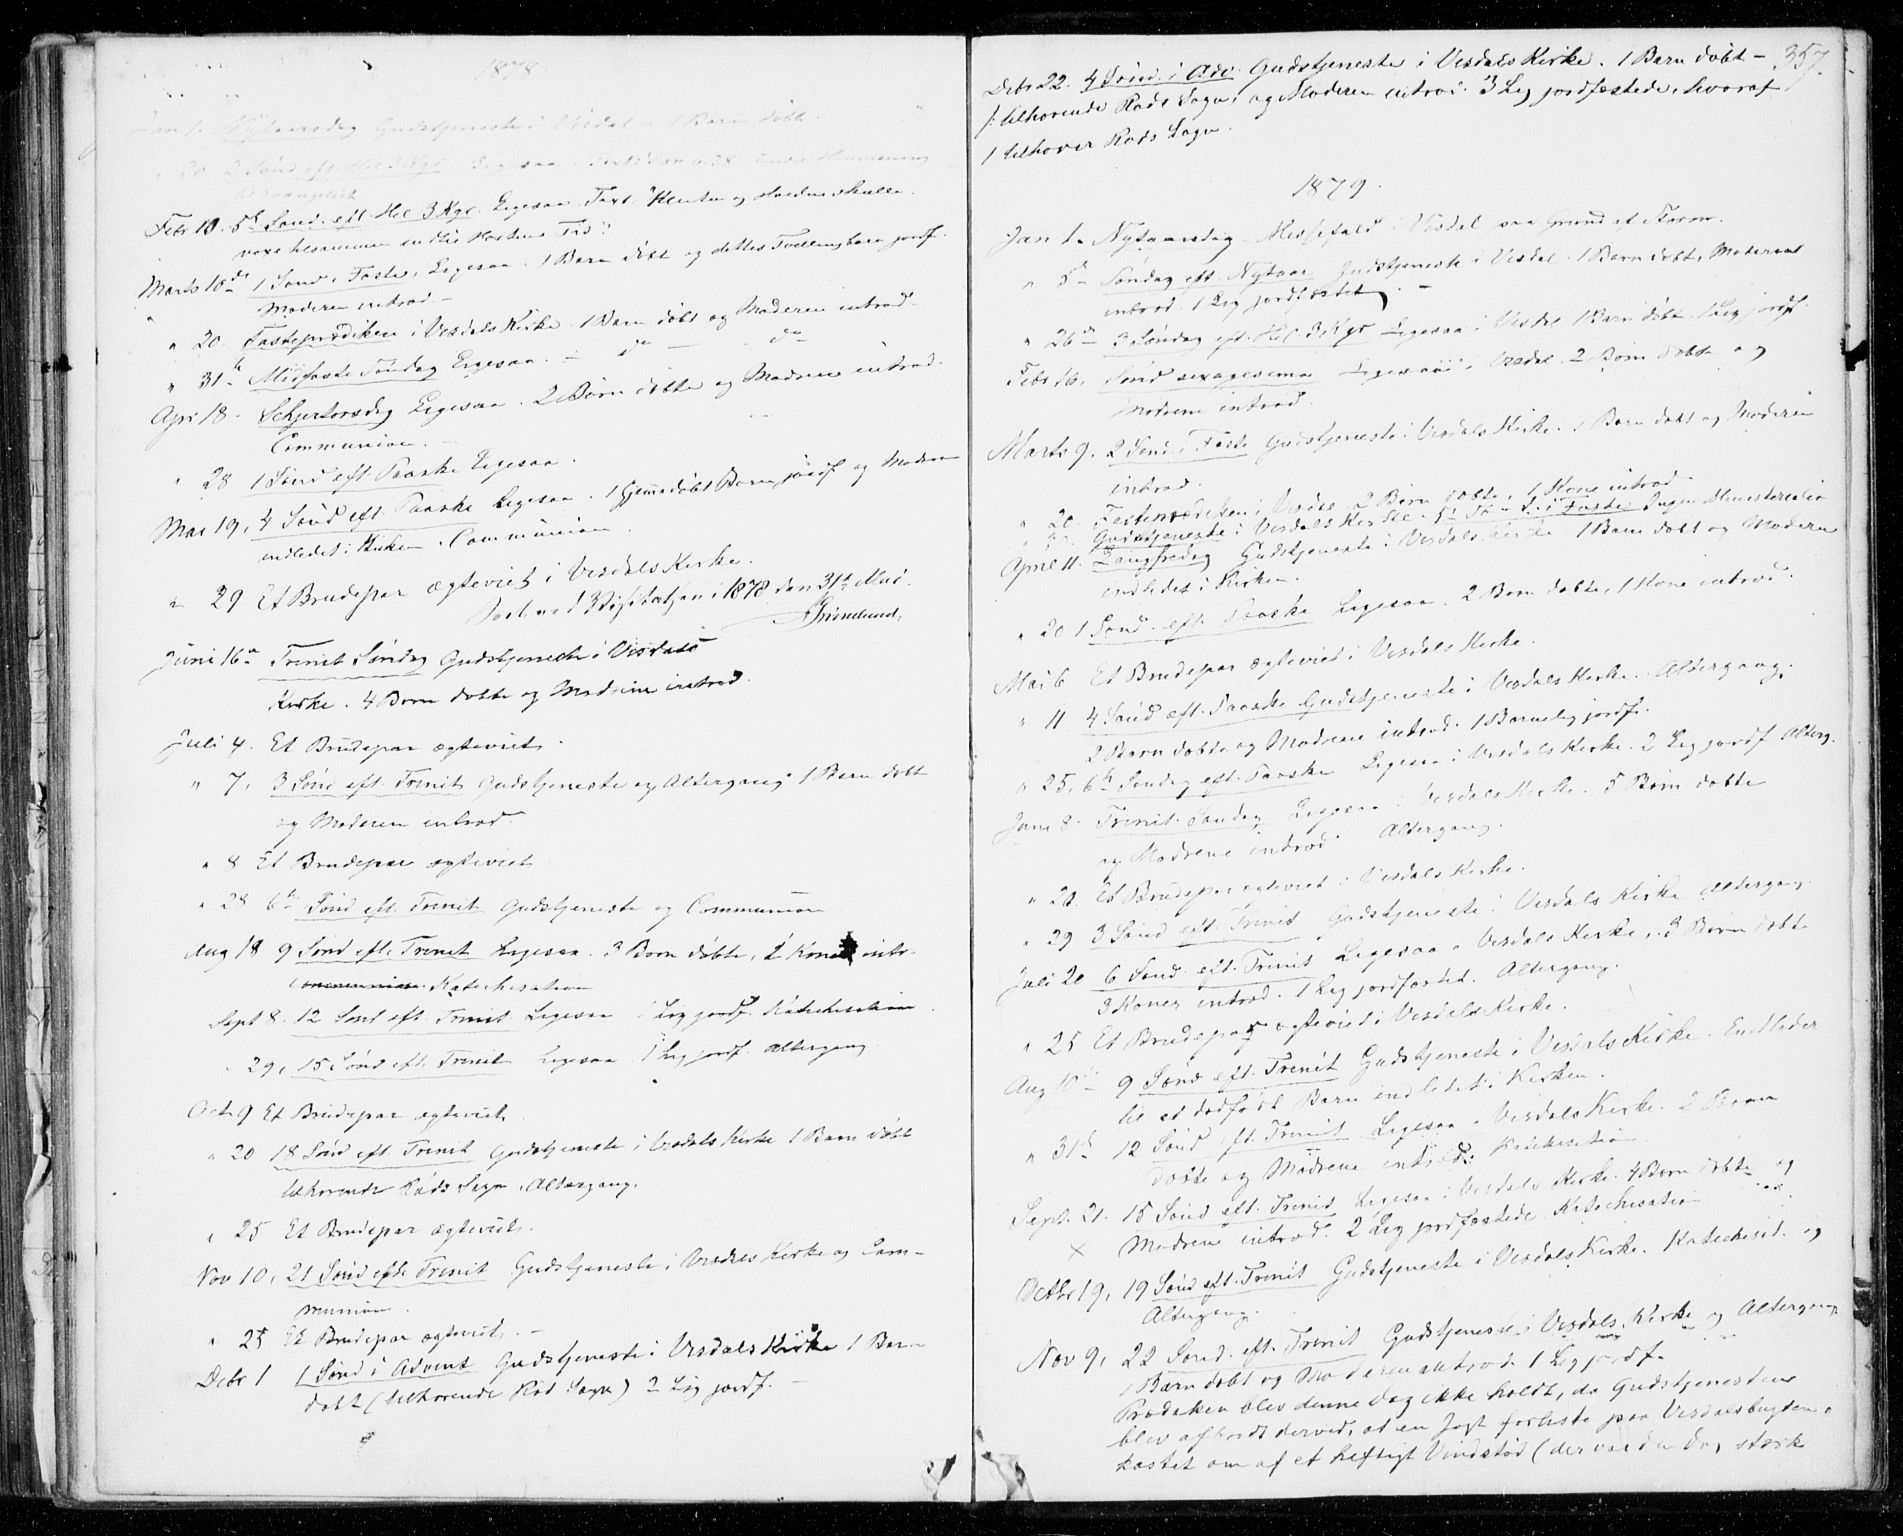 1878.
Jan 1. Nytaarsdag Gudstjeneste i Visdal. 1 Barn døbt.
" 20 2 Sønd eft Hel 3 Kgr Ligesaa. Text:
Febr 10. 5te Sønd. eft. Hel 3 Kgr. Ligesaa. Text: "Hveten og skulle
voxe tilsammen indtil Høstens Tid".
Marts 10de 1 Sønd. i Faste, Ligesaa. 1 Barn døbt og dettes Tvillingbarn jordf.
Moderen introd. –
" 20. Fasteprædiken i Visdals Kirke. 1 Barn døbt og Moderen introd.
" 31te Midfaste Søndag Ligesaa. – do – do
Apr 18. Skjertorsdag Ligesaa. 2 Børn døbte og Mødrene introd.
Communion. –
" 28 1 Sønd eft Paaske Ligesaa.
Mai 19, 4 Sønd eft. Paaske Ligesaa. 1 hjemmedøbt Barn jordf og Moderen
indledet i Kirken. Communion
" 29 Et Brudepar ægteviet i Visdals Kirke.
Forev. ved Visitatsen i 1878 den 31te Mai.
Grimelund.
Juni 16de Trinit Søndag Gudstjeneste i Visdals
Kirke. 4 Børn døbte og Mødrene introd.
Juli 4. Et Brudepar ægteviet.
" 7, 3 Sønd eft. Trinit Gudstjeneste og Altergang 1 Barn døbt
og Moderen introd.
" 8 Et Brudepar ægteviet
" 28 6te Sønd eft. Trinit Gudstjeneste og Communion
Aug 18 9 Sønd eft. Trinit Ligesaa. 3 Børn døbte, 2 Koner intr.
Communion Katechisation
Sept 8. 12 Sønd eft. Trinit Ligesaa 1 Lig jordf. Katechisation
" 29, 15 Sønd eft. Trinit Ligesaa. 1 Lig jordf. Altergang
Oct 9 Et Brudepar ægteviet.
" 20 18 Sønd eft. Trinit Gudstjeneste i Visdals Kirke 1 Barn døbt
tilhørende Røds Sogn. Altergang.
" 25 Et Brudepar ægteviet.
Nov 10, 21 Sønd eft. Trinit Gudstjeneste i Visdals Kirke og Com-
munion.
" 25 Et Brudepar ægteviet. –
Debr 1 1 Sønd i Advent Gudstjeneste i Visdals Kirke 1 Barn
døbt (tilhørende Rød Sogn) 2 Lig jordf. –
357.
Debr 22. 4 Sønd. i Adv. Gudstjeneste i Visdals Kirke. 1 Barn døbt –
/: tilhørende Røds Sogn, og Moderen introd. 3 Lig jordfæstede, hvoraf
1 tilhører Røds Sogn.
1879.
Jan 1. Nytaarsdag Messefald i Visdal paa Grund af Storm.
" 5te Søndag eft. Nytaar Gudstjeneste i Visdal. 1 Barn døbt, Moderen
introd. 1 Lig jordfæstet. –
" 26de 3 Søndag eft. Hel 3 Kgr Ligesaa i Visdal 1 Barn døbt. 1 Lig jordf.
Febr 16. Sønd sexagesima Ligesaa i Visdal. 2 Børn døbte og
Mødrene introd.
Marts 9. 2 Sønd. i Faste Gudstjeneste i Visdals Kirke. 1 Barn døbt og Moderen
introd.
" 20. Fasteprædiken i Visdal. 2 Børn døbte, 1 Kone introd.
" 30. Gudstjeneste i Visdals Kirke. 5te Sønd. i Faste. Ingen Ministerialia
April 11. Langfredag Gudstjeneste i Visdals Kirke 1 Barn døbt og Moderen
indledet i Kirken.
" 20 1 Sønd. eft. Paaske Ligesaa. 2 Børn døbte, 1 Kone introd.
Mai 6 Et Brudepar ægteviet i Visdals Kirke.
" 11 4 Sønd eft. Paaske Gudstjeneste i Visdals Kirke. Altergang.
2 Børn døbte og Mødrene introd. 1 Barnelig jordf.
" 25, 6te Søndag eft. Paaske Ligesaa i Visdals Kirke. 2 Lig jordf Alterg.
Juni 8. Trinit. Søndag Ligesaa i Visdals Kirke. 5 Børn døbte
og Mødrene introd. Altergang.
" 20. Et Brudepar ægteviet i Visdals Kirke.
" 29 3 Sønd eft. Trinit Gudstjeneste i Visdals Kirke Altergang.
Juli 20 6 Sønd. eft. Trinit Ligesaa i Visdals Kirke. 3 Børn døbte
3 Koner introd. 1 Lig jordfæstet. Altergang.
" 25 Et Brudepar ægteviet i Visdals Kirke.
Aug 10de 9 Sønd eft. Trinit Gudstjeneste i Visdals Kirke. En Moder
til et dødfødt Barn indledet i Kirken.
" 31te 12 Sønd eft. Trinit Ligesaa i Visdals Kirke. 2 Børn
døbte og Mødrene introd. Katekisation
Sept. 21. 15 Sønd eft. Trinit Ligesaa i Visdals Kirke. 4 Børn døbte og
× Mødrene introd. 2 Lig jordfæstede Katechisation
Octbr 19, 19 Sønd eft. Trinit Gudstjeneste i Visdals Kirke. Katechisat. og
Altergang.
Nov 9, 22 Sønd. eft. Trinit Gudstjeneste i Visdals Kirke og Altergang.
1 Barn døbt og Moderen introd. 1 Lig jordf.
Prædiken blev denne Dag ikke holdt, da Gudstjenesten
blev afbrudt derved, at en Jagt forliste paa Visdalsbugten,
kastet om af et heftigt Vindstød (der var den Dag stærk